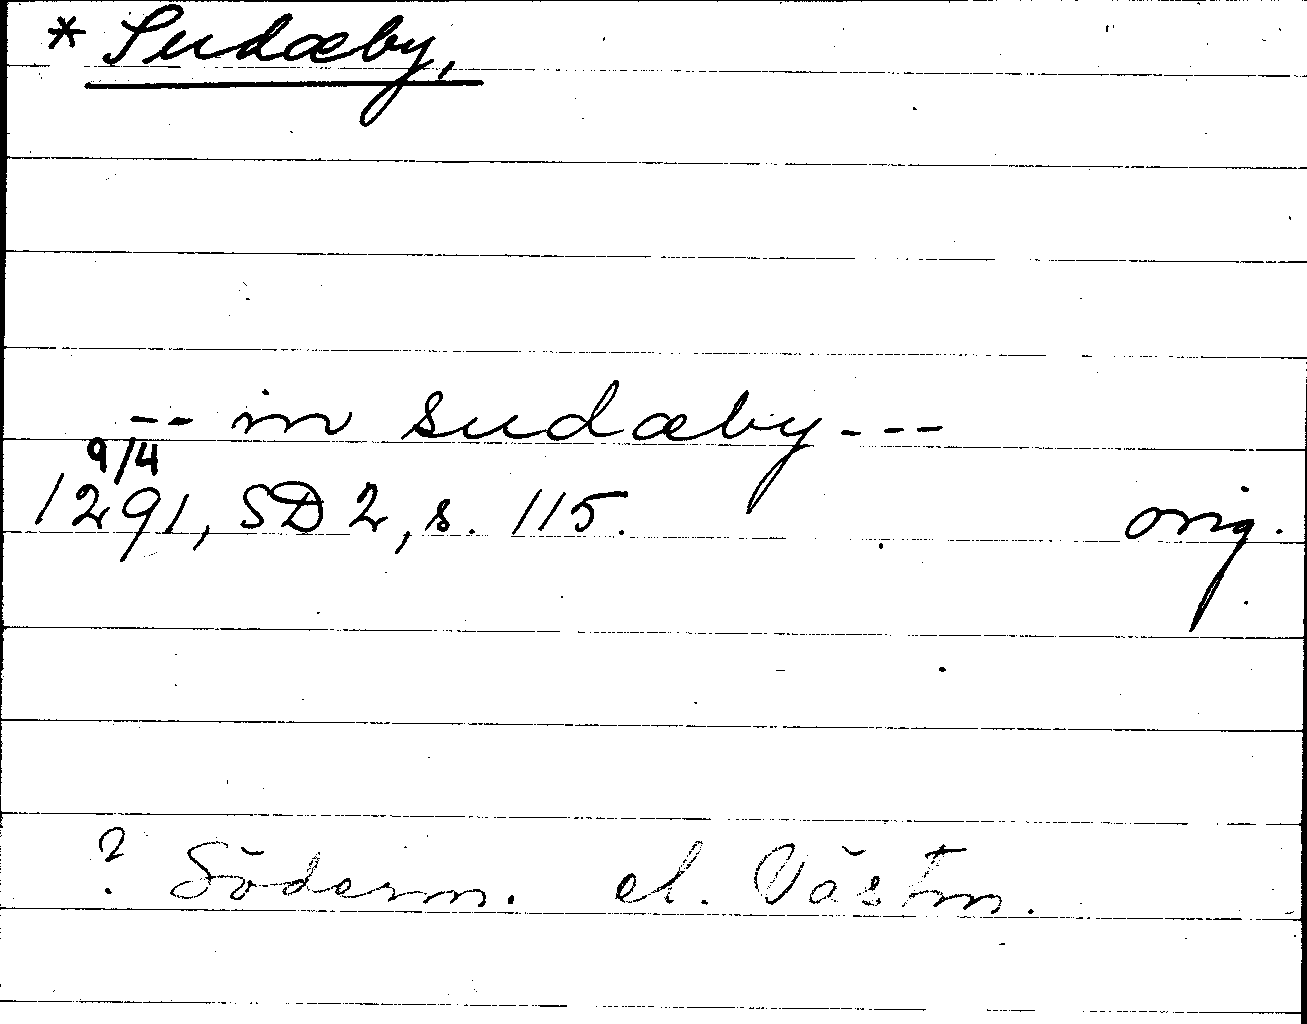 * Sudæby,
-- in sudæby ---
9/4
1291, SD 2, s. 115. orig.
? Söderm. el. Västm.